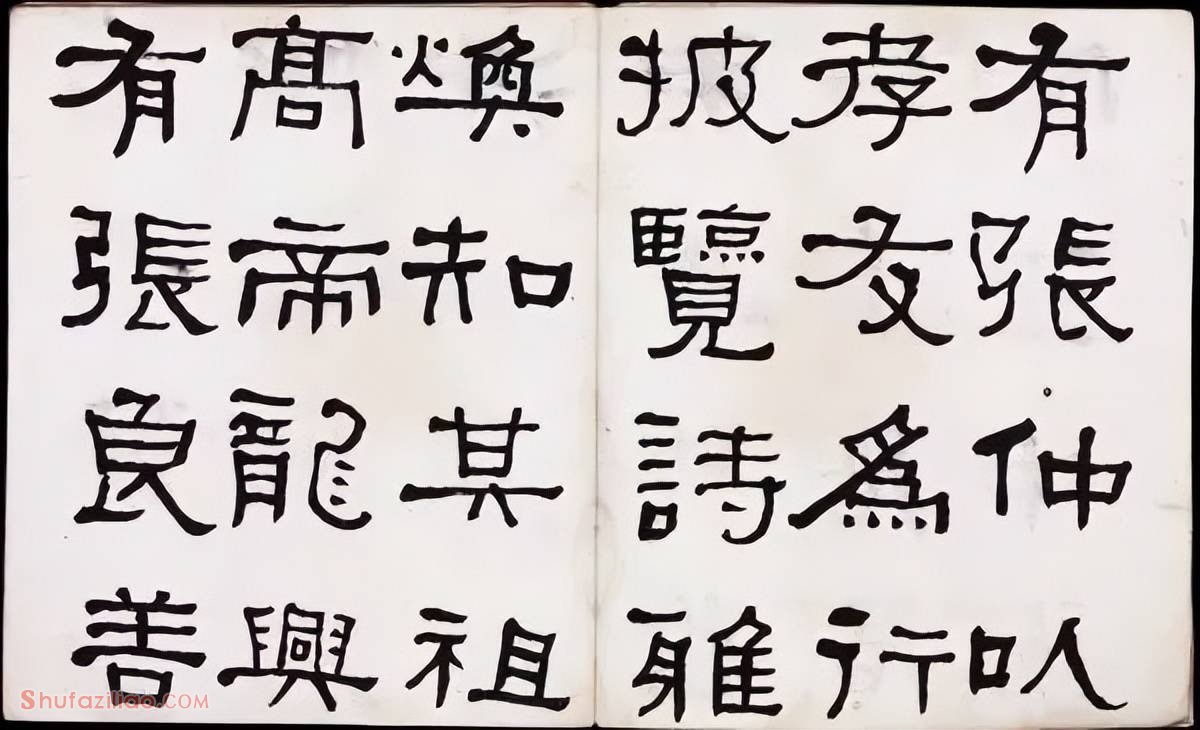 有張仲以
孝友為行
披覽詩雅
煥知其祖
高帝龍興
有張良善
Shufaziliao.COM